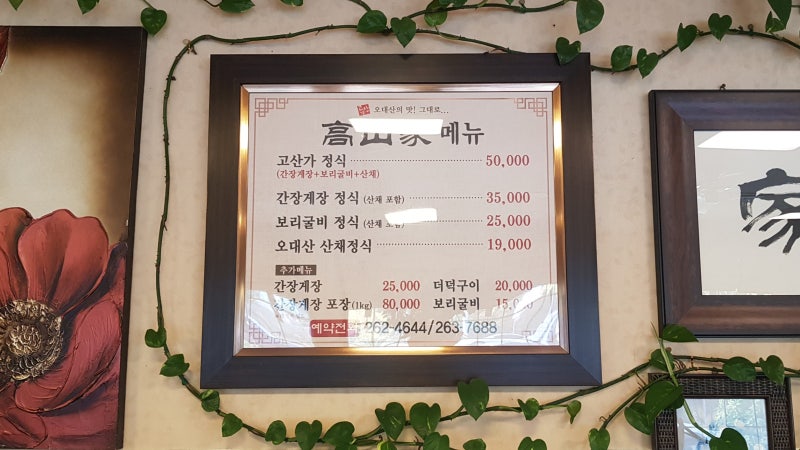 오대산의 맛! 그대로...
高山家 메뉴
고산가 정식 50,000
(간장게장+보리굴비+산채)
간장게장 정식 (산채 포함) 35,000
보리굴비 정식 (산채 25,000
오대산 산채정식 19,000
추가메뉴
간장게장 25,000 더덕구이 20,000
간장게장 포장(1kg) 80,000 보리굴비
262-4644/263-7688
家